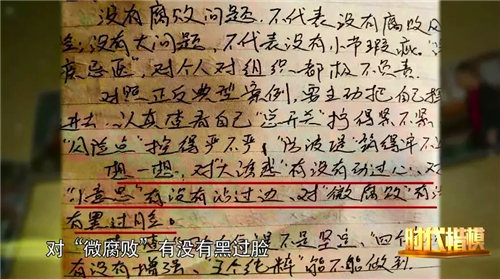 没有腐败问题，不代表没有腐败风
险；没有大问题，不代表没有小节瑕疵。“
疾忌医”，对个人对组织都极不负责。
对照正反典型案例，要主动把自己摆
进去，认真查看自己“总开关”拧得紧不紧
“风险点”控得严不严，
想一想，对“大诱惑”有没有动过心、对
“小意思”有没有沾过边、对“微腐败”有没
有黑过脸。
是不是坚定，“四个
有没有增强、“三个纯粹”能不能做到
对“微腐败”有没有黑过脸
时代楷模